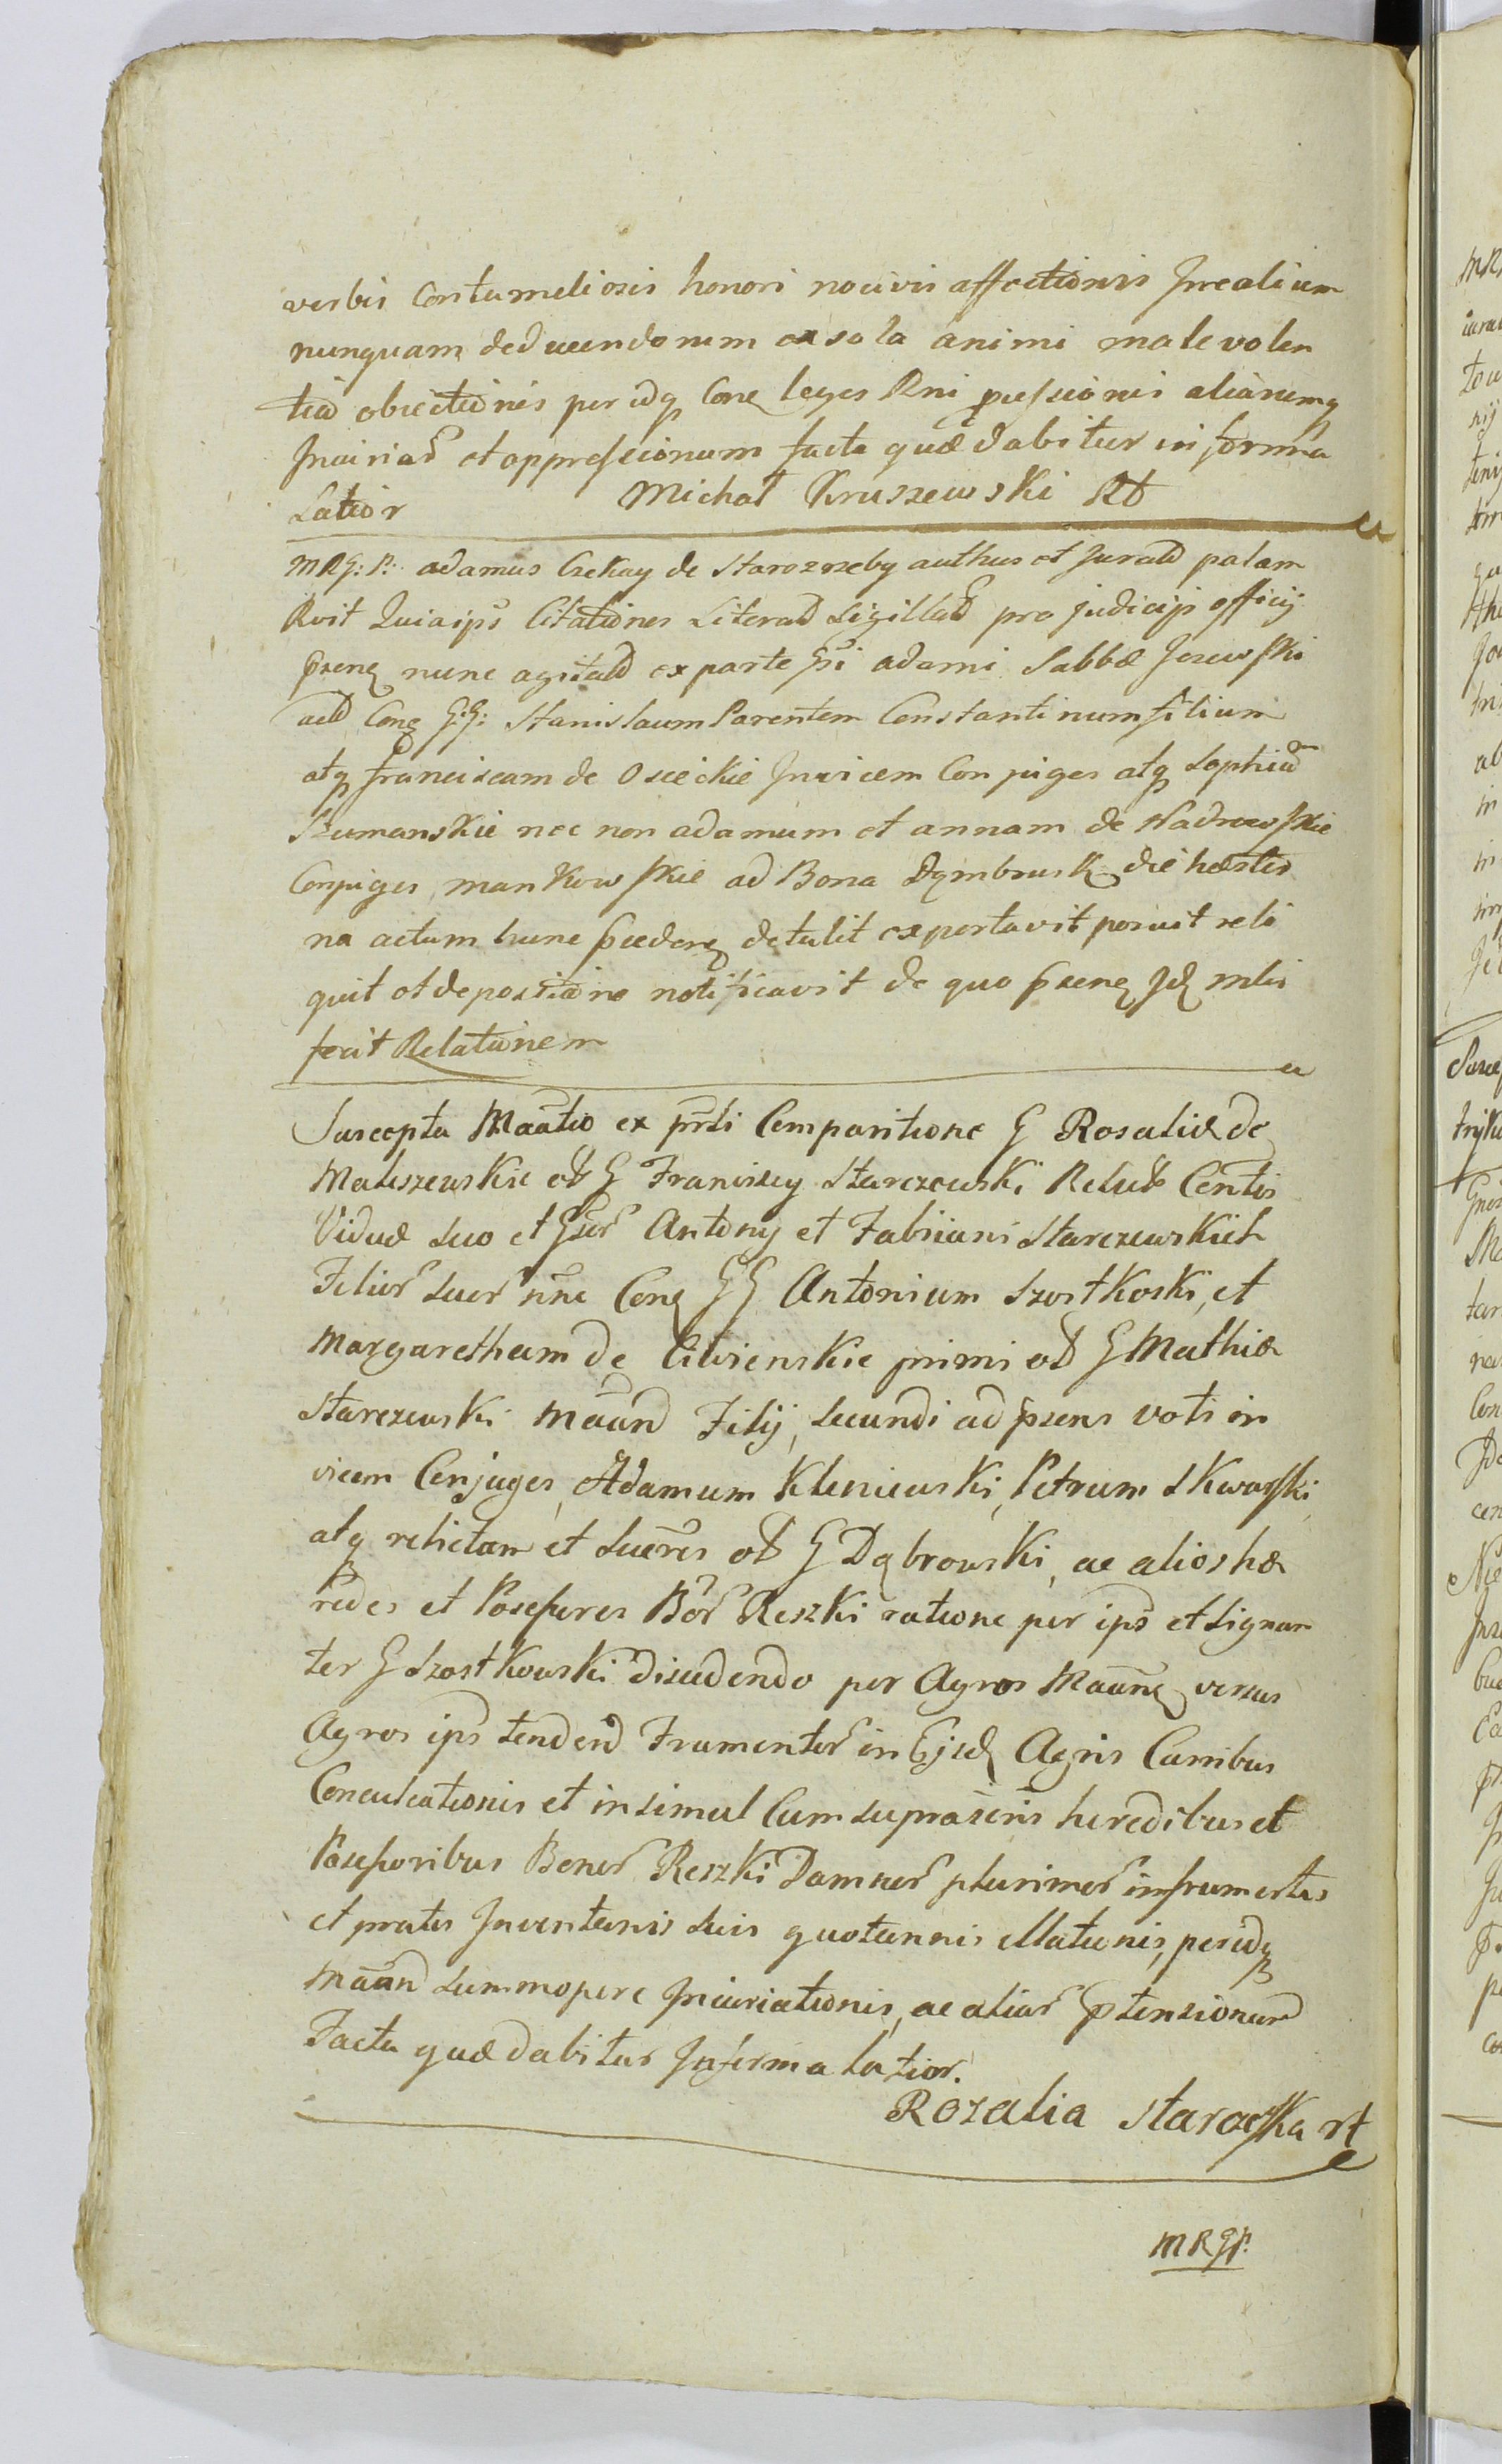 verbis Contumeliosis honori nocivis affectionis Jnrealium
nunquam deducendorum ex sola animi malevolen
tia obiectionis per idq Cone leges Rni pressionis aliarumq
Jniuriar et oppressionum facta quæ dabitur in forma
Latior Michał Kruszewski Rt
MRG: P: adamus Czekay de Starozrzeby authus et Juratd palam
Rvit Quia ips Citationes Literad Sigillad pro judicijs officij
pzenq nunc agitand ex parte adami Sabbæ Jezewski
actd Cone G:G: Stanislaum Parentem Constantinum filium
atq franciscam de Osieckie Jnvicem Conjuges atq Sophiam
Szumanskie nec non adamum et annam de Nadrowskie
Conjuges mankowskie ad Bona Dymbrusk die hester
na actum hunc pcedenq detulit exportavit posuit reli
quit et depositione notificavit de quo pzenq Jd mlis
fecit Relationem
Suscepta Maatio ex prsti Comparitione G Rosaliæ de
Maliszewskie ob G Franciscy Starczewski Relicta Centis
Viduæ suo et Antony et Fabiiani Starczewskich
Filior suor nne Cone GG Antonium Szostkoski, et
Margaretham de Cilvienskie primi ob G Mathiæ
Starczewski Maand Filij, secundi ad pzens voti in
vicem Conjuges, Adamum Kleniewski, Petrum Skwarski
atq relictam et Succres ob G Dąbrowski, ac alios hæ
redes et Possesores Bor Reszki ratione per ips et Signan
ter G Szostkowski discedendo per Agros Maane versus
Agros ips tendend Frumentor in Ejsd Agris Curribus
Conculcationis et insimul Cum suprascris heredibus et
Possessoribus Bonor Reszki Damnor plurimor in frumentis
et pratis Jnventariis suis quotannis illationis, per idq
Maand summopere Jniuriationis, ac aliar ptensionum
Facta quæ dabitur Jnforma latior.
Rozalia Starczeska rt
MRGP.